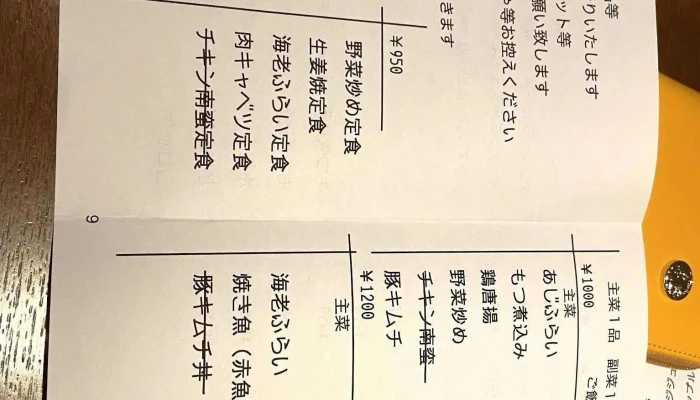 等
りいたします
ット等
願い致します
等お控えください
きます
¥950
野菜炒め定食
生姜焼定食
海老ふらい定食
肉キャベツ定食
チキン南蛮定食
9
主菜1品 副菜1
ご飯
¥1000
主菜
あじふらい
もつ煮込み
鶏唐揚
野菜炒め
チキン南蛮
豚キムチ
¥1200
主菜
海老ふらい
焼き魚(赤魚
豚キムチ丼